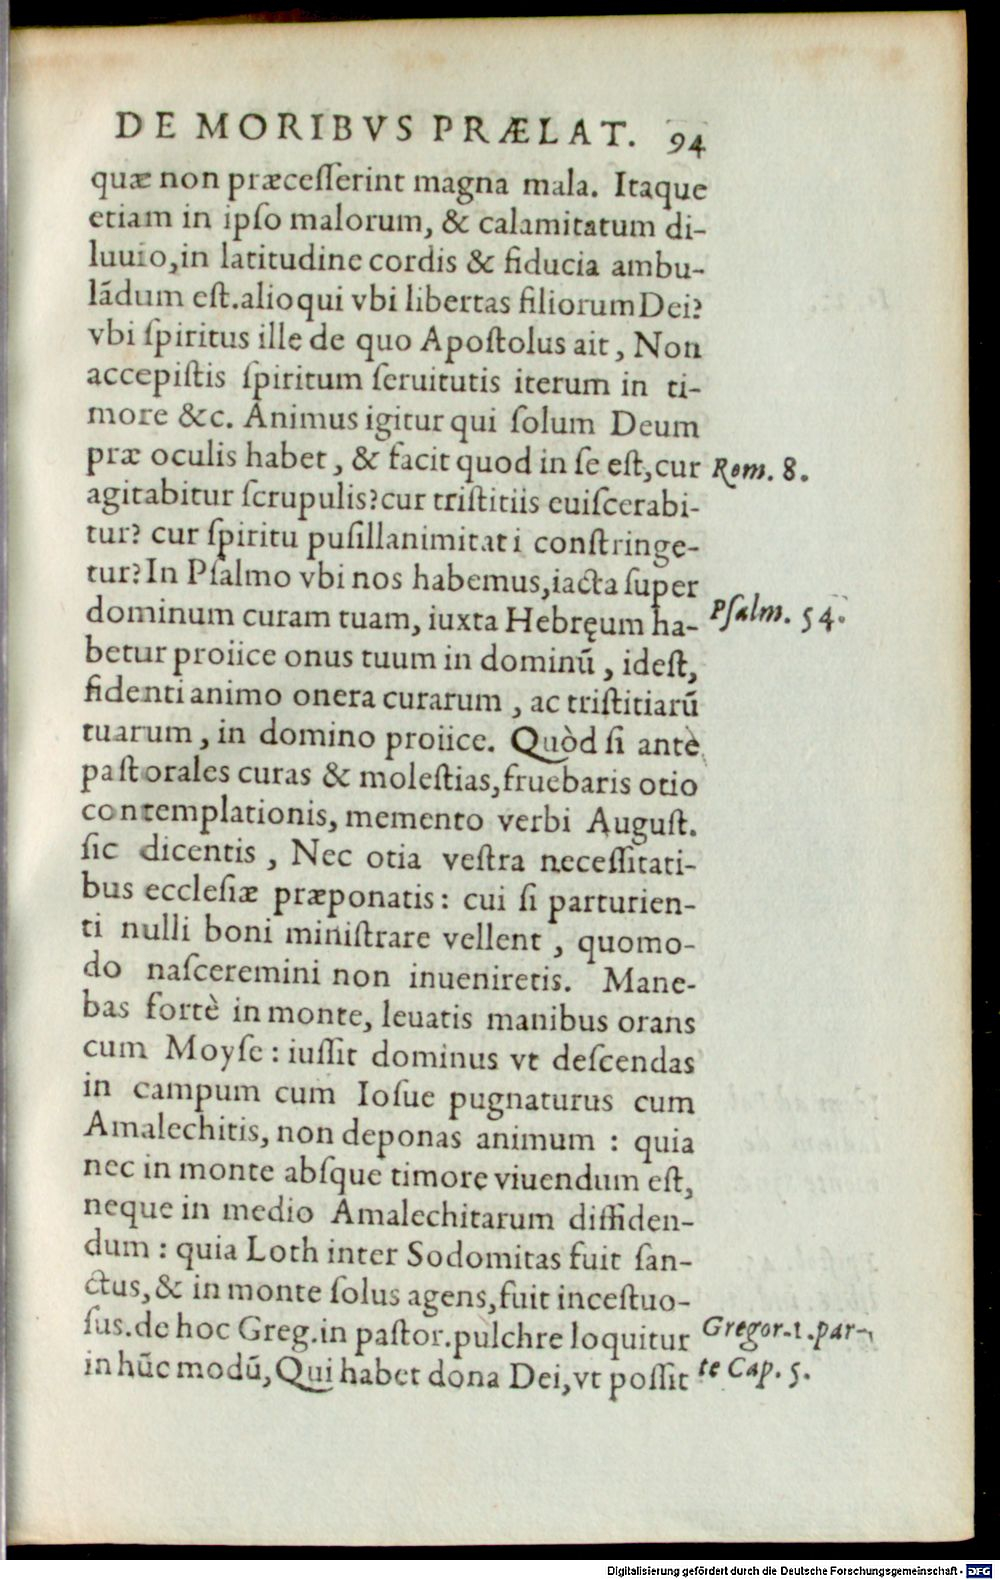 DE MORIBVS PRÆLAT. 94
quæ non præcesserint magna mala. Itaque
etiam in ipso malorum, & calamitatum di-
luuio, in latitudine cordis & fiducia ambu-
lādum est. alioqui vbi libertas filiorum Dei?
vbi spiritus ille de quo Apostolus ait, Non
accepistis spiritum seruitutis iterum in ti-
more &c. Animus igitur qui solum Deum
præ oculis habet, & facit quod in se est, cur
Rom. 8.
agitabitur scrupulis? cur tristitiis euiscerabi-
tur? cur spiritu pusillanimitati constringe-
tur? In Psalmo vbi nos habemus, iacta super
dominum curam tuam, iuxta Hebręum ha-
Psalm. 54.
betur proiice onus tuum in dominū, idest,
fidenti animo onera curarum, ac tristitiarū
tuarum, in domino proiice. Quòd si antè
pastorales curas & molestias, fruebaris otio
contemplationis, memento verbi August.
sic dicentis, Nec otia vestra necessitati-
bus ecclesiæ præponatis: cui si parturien-
ti nulli boni ministrare vellent, quomo-
do nasceremini non inueniretis. Mane-
bas fortè in monte, leuatis manibus orans
cum Moyse: iussit dominus vt descendas
in campum cum Iosue pugnaturus cum
Amalechitis, non deponas animum: quia
nec in monte absque timore viuendum est,
neque in medio Amalechitarum diffiden-
dum: quia Loth inter Sodomitas fuit san-
ctus, & in monte solus agens, fuit incestuo-
sus. de hoc Greg. in pastor. pulchre loquitur
Gregor. 1. par-
in hūc modū, Qui habet dona Dei, vt possit
te Cap. 5.
Digitalisierung gefördert durch die Deutsche Forschungsgemeinschaft - DFG